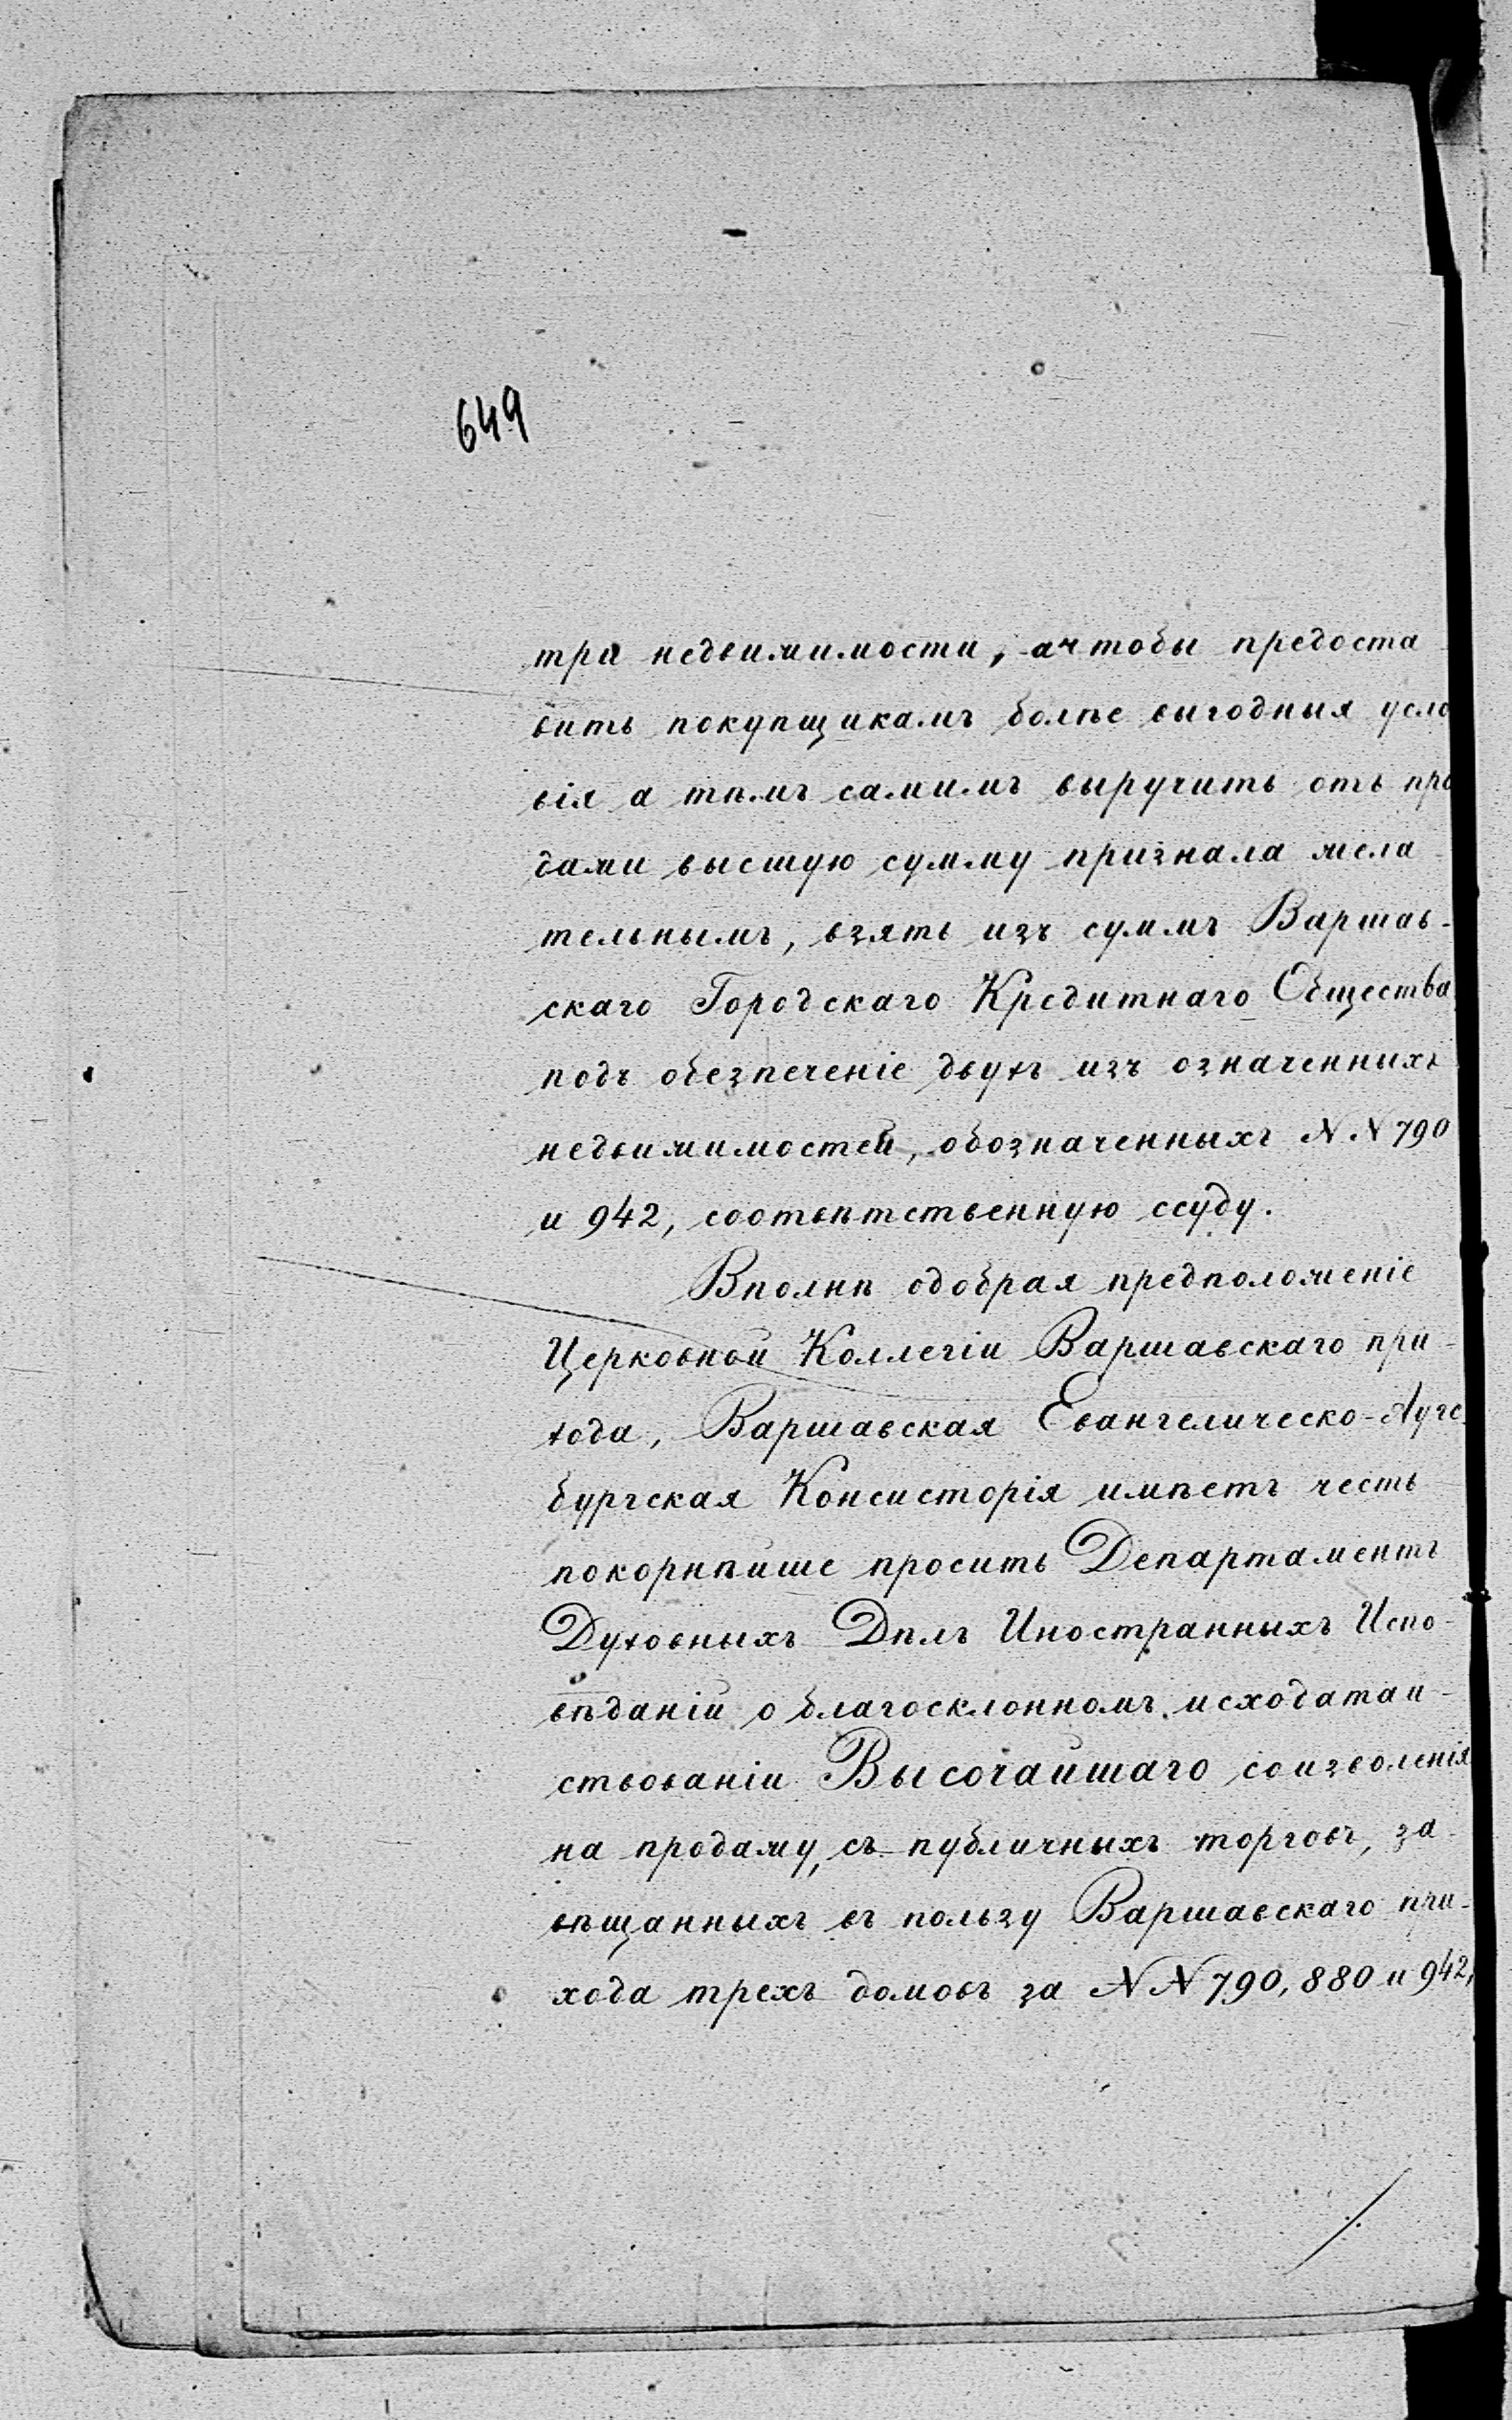 649
три недвижимости, а чтобы предоста
вить покупщикамъ болѣе выгодныя усло
вія а тѣмъ самымъ выручить отъ про
дажи высшую сумму признала жела
тельнымъ, взять изъ суммъ Варшав-
скаго Городскаго Кредитнаго Общества
подъ обезпеченіе двухъ изъ означенныхъ
недвижимостей, обозначенныхъ NN 790
и 942, соотвѣтственную ссуду.
Вполнѣ одобряя предположеніе
Церковной Коллегіи Варшавскаго при-
хода, Варшавская Евангелическо-Аугс
бургская Консисторія имѣетъ честь
покорнѣйше просить Департаментъ
Духовныхъ Дѣлъ Иностранныхъ Испо-
вѣданій о благосклонномъ исходатай-
ствованіи Высочайшаго соизволенія
на продажу, съ публичныхъ торговъ, за-
вѣщанныхъ въ пользу Варшавскаго при-
хода трехъ домовъ за NN 790, 880 и 942,